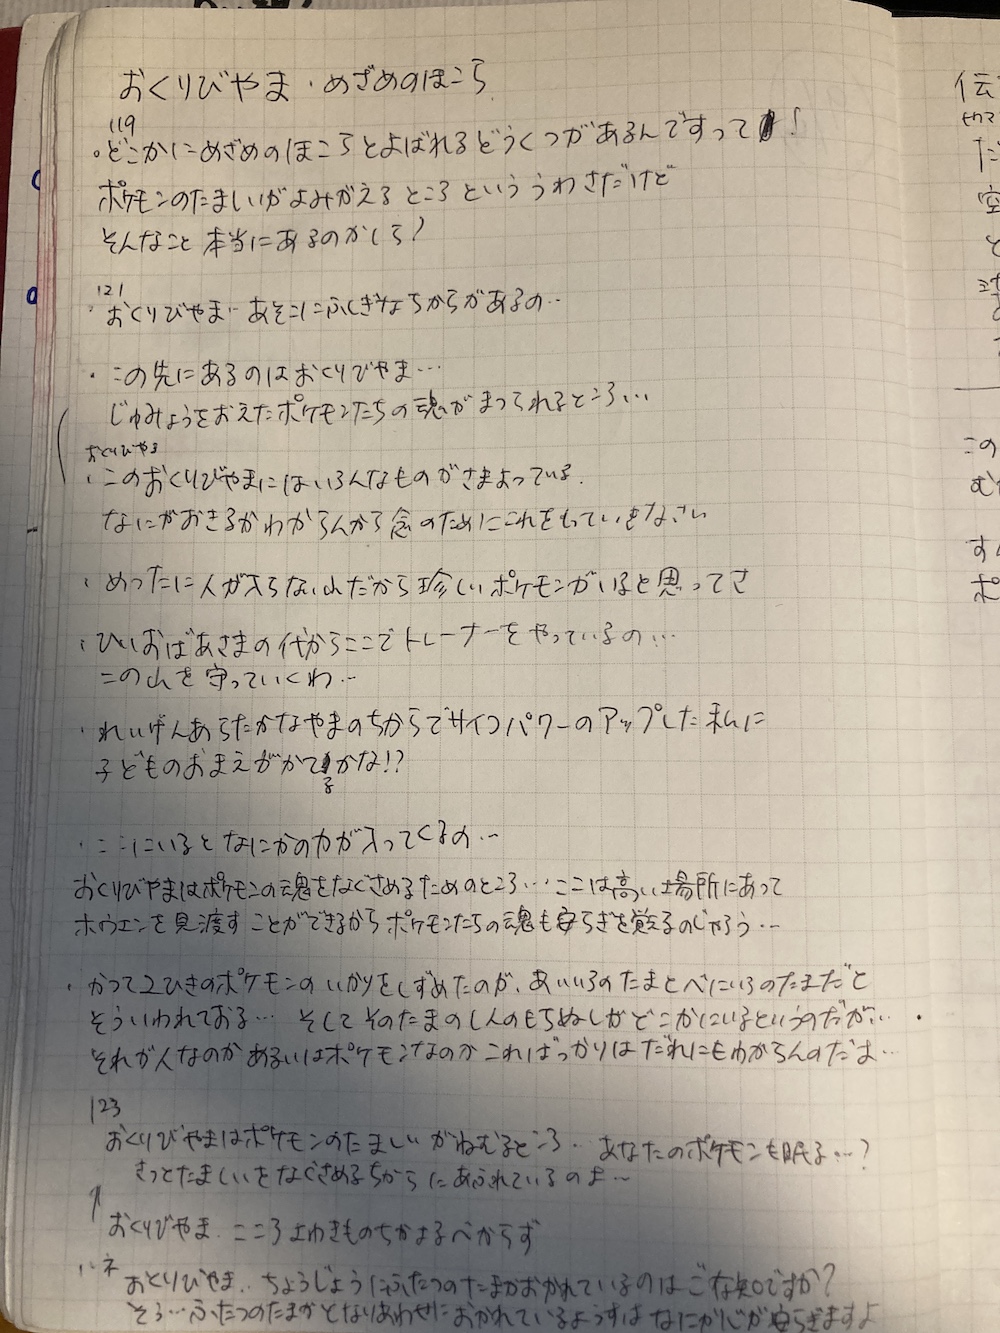 おくりびやま・めざめのほこら
119
。どこかにめざめのほこらとよばれるどうくつがあるんですって!
ポケモンのたましいがよみがえるところといううわさだけど
そんなこと本当にあるのかしら?
121
・おくりびやま… あそこにふしぎなちからがあるの…
・この先にあるのはおくりびやま…
じゅみょうをおえたポケモンたちの魂がまつられるところ…
おくりびやま
・このおくりびやまにはいろんなものがさまよっている.
なにがおきるかわからんから念のためにこれをもっていきなさい
・めったに人が入らない山だから珍しいポケモンがいると思ってさ
・ひいおばあさまの代からここでトレーナーをやっているの…
この山を守っていくわ…
・れいげんあらたかなやまのちからでサイコパワーのアップした私に
子どものおまえがかてるかな!?
・ここにいるとなにかの力が入ってくるの…
おくりびやまはポケモンの魂をなぐさめるためのところ… ここは高い場所にあって
ホウエンを見渡すことができるからポケモンたちの魂も安らぎを覚えるのじゃろう…
・かつて2ひきのポケモンのいかりをしずめたのが、あいいろのたまとべにいろのたまだと
そういわれておる… そしてそのたまの1人のもちぬしがどこかにいるというのだが…
それが人なのかあるいはポケモンなのかこればっかりはだれにもわからんのだよ…
123
おくりびやまはポケモンのたましいがねむるところ… あなたのポケモンも眠る…?
きっとたましいをなぐさめるちからにあふれているのよ…
おくりびやま こころよわきものちかよるべからず
おくりびやま… ちょうじょうにふたつのたまがおかれているのはご存知ですか?
そう… ふたつのたまがとなりあわせにおかれているようすはなにか心が安らぎますよ
伝
だ
空
と
この
む
す
ポ